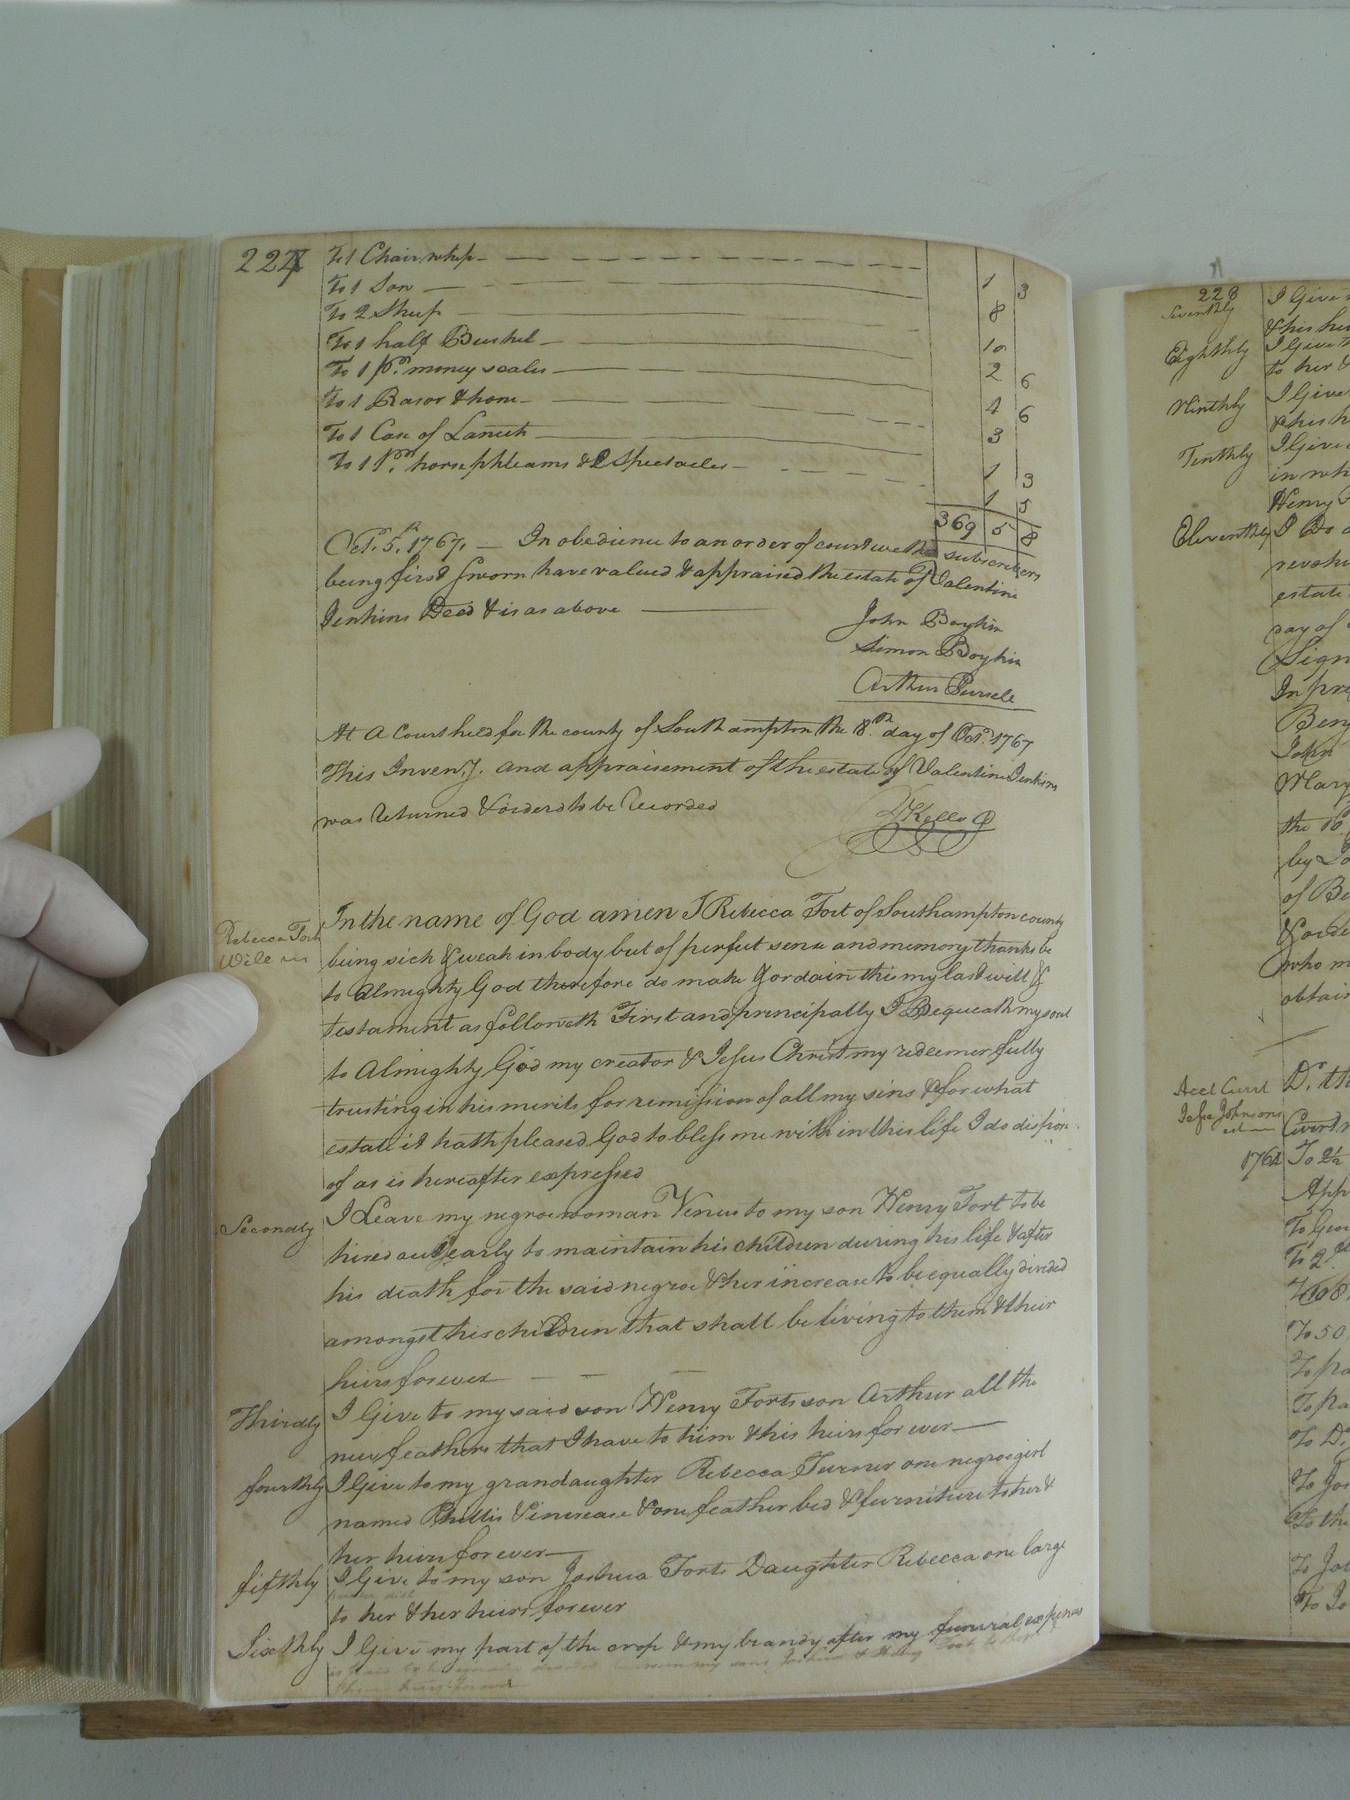 227
To 1 Chair whip
To 1 Sow 1 3
To 2 Sheep 8
To 1 half Bushel 10
To 1 pr. money scales 2 6
To 1 Rasor & hone 4 6
To 1 Case of Lancets 3
To 1 pr. horse phleams & Spectacles 1 3
1 5
369 5 8
Octr. 5th. 1767. In obedience to an order of court we the subscribers
being first sworn have valued & appraised the estate of Valentine
Jenkins Decd & is as above
John Boykin
Simon Boykin
Arthur Pursele
At a Court held for the county of Southampton the 8th day of Octr. 1767
This Inven.y. and appraisement of the estate of Valentine Jenkins
was returned & orderd to be Recorded
Kello
Rebecca Fort
Will
In the name of God amen I Rebecca Fort of Southampton county
being sick & weak in body but of perfect sense and memory thanks be
to Almighty God therefore do make & ordain this my last will &
testament as followeth First and principally I Bequeath my soul
to Almighty God my creator & Jesus Christ my redeemer fully
trusting in his merits for remission of all my sins & for what
estate it hath pleased God to bless me with in this life I do dispose
of as is hereafter expressed
Secondly I Leave my negroe woman Venus to my son Henry Fort to be
hired out yearly to maintain his children during his life & after
his death for the said negroe & her increase to be equally divided
amongst his children that shall be living to them & their
heirs forever
Thirdly I Give to my said son Henry Forts son Arthur all the
new feathers that I have to him & his heirs for ever
fourthly I Give to my grandaughter Rebecca Turner one negroe girl
named Phillis & increase & one feather bed & furniture to her &
her heirs for ever
fifthly I Give to my son Joshua Forts Daughter Rebecca one large
to her & her heirs forever
Sixthly I Give my part of the crop & my brandy after my funeral expences
my sons Joshua &
their heirs forever
228
Seventhly I Give
& his he
Eighthly I Give
to her &
Ninthly I Give
& his h
Tenthly I Give
in wh
Henry
Eleventhly I Do
revoke
estate
day of
Sign
In pre
Benj
John
Mary
the 10
by Jo
of Be
& orde
who m
obtain
Acct Currt
Jesse Johnsons
Dr. th
Court
To 2½
App
To Geo
To 2
To 50
To pa
To pa
To D
To Jos
To the
To Jo
To Jo